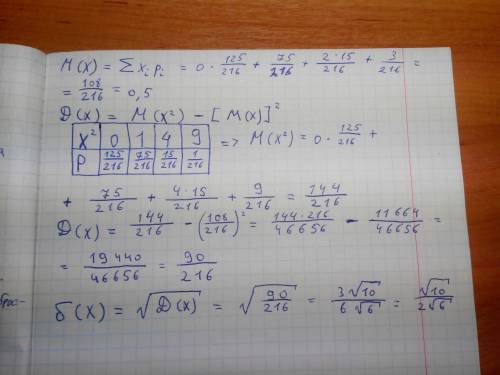 M(X) = ∑ xᵢ pᵢ = 0 · 125/216 + 75/216 + 2·15/216 + 3/216 =
= 108/216 = 0,5
D(X) = M(X²) − [M(X)]²
X² | 0 | 1 | 4 | 9
P | 125/216 | 75/216 | 15/216 | 1/216
=> M(X²) = 0 · 125/216 +
+ 75/216 + 4·15/216 + 9/216 = 144/216
D(X) = 144/216 − (108/216)² = 144·216/46656 − 11664/46656 =
= 19440/46656 = 90/216
δ(X) = √D(X) = √(90/216) = 3√10/6√6 = √10/2√6
брос-